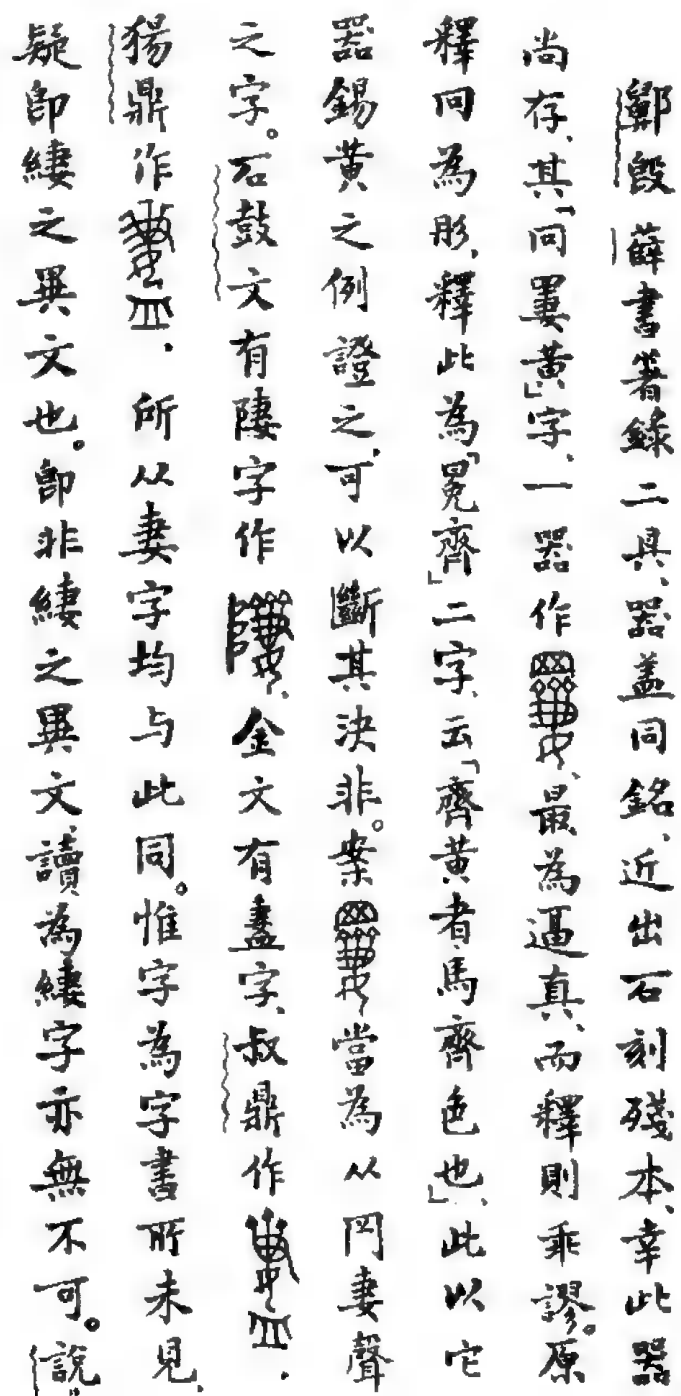 鄭𣪘 薛書著錄二具、器蓋同銘、近出石刻殘本、幸此器
尚存、其「冋䙴黃」字、一器作、最為逼真、而釋則乖謬。原
釋冋為彤、釋此為「冕齊」二字、云「齊黃者、馬齊色也」、此以它
器錫黃之例證之、可以斷其決非。案當為从冂妻聲
之字。石鼓文有䧅字作、金文有𥂴字、叔鼎作、
㺊鼎作、所从妻字均与此同。惟字為字書所未見、
疑即緀之異文也。即非緀之異文、讀為緀字亦無不可。說